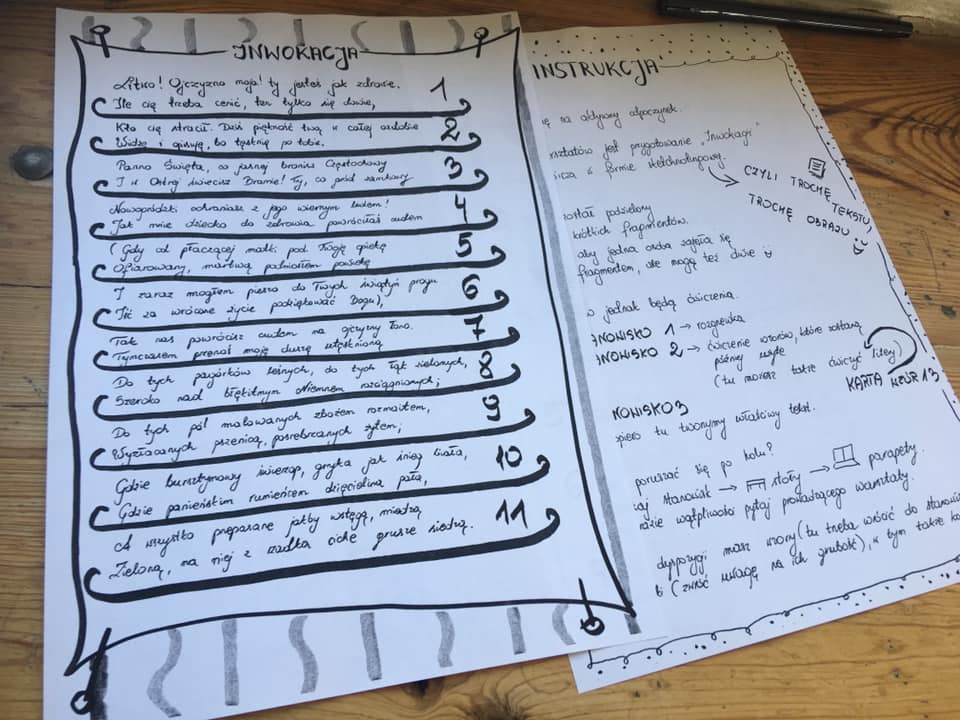 INWOKACJA
Litwo! Ojczyzno moja! ty jesteś jak zdrowie.
Ile cię trzeba cenić, ten tylko się dowie,
1
Kto cię stracił. Dziś piękność twą w całej ozdobie
Widzę i opisuję, bo tęsknię po tobie.
2
Panno Święta, co jasnej bronisz Częstochowy
I w Ostrej świecisz Bramie! Ty, co gród zamkowy
3
Nowogródzki ochraniasz z jego wiernym ludem!
Jak mnie dziecko do zdrowia powróciłaś cudem
4
(Gdy od płaczącej matki pod Twoję opiekę
Ofiarowany, martwą podniosłem powiekę
5
I zaraz mogłem pieszo do Twych świątyń progu
Iść za wrócone życie podziękować Bogu),
6
Tak nas powrócisz cudem na ojczyzny łono.
Tymczasem przenoś moją duszę utęsknioną
7
Do tych pagórków leśnych, do tych łąk zielonych,
Szeroko nad błękitnym Niemnem rozciągnionych;
8
Do tych pól malowanych zbożem rozmaitem,
Wyzłacanych pszenicą, posrebrzanych żytem;
9
Gdzie bursztynowy świerzop, gryka jak śnieg biała,
Gdzie panieńskim rumieńcem dzięcielina pała,
10
A wszystko przepasane jakby wstęgą, miedzą
Zieloną, na niej z rzadka ciche grusze siedzą.
11
INSTRUKCJA
ię na aktywny odpoczynek.
rsztatów jest przygotowanie "Inwokacji"
icza w formie sketchnotingowej.
CZYLI TROCHĘ TEKSTU
TROCHĘ OBRAZU
został podzielony
krótkich fragmentów.
aby jedna osoba zajęła się
fragmentem, ale mogą też dwie
jednak będą ćwiczenia.
NOWISKO 1 → rozgrzewka
NOWISKO 2 → ćwiczenie wzorów, które zostaną
później użyte
(tu możesz także ćwiczyć litery)
KARTA WZÓR 13
NOWISKO 3
piero tu tworzymy właściwy tekst.
poruszać się po kolu?
aj stanowisk → stoły → parapety.
razie wątpliwości pytaj prowadzącego warsztaty.
dyspozycji masz wzory (tu trzeba wrócić do stanowis
(zwróć uwagę na ich grubość), w tym także ko